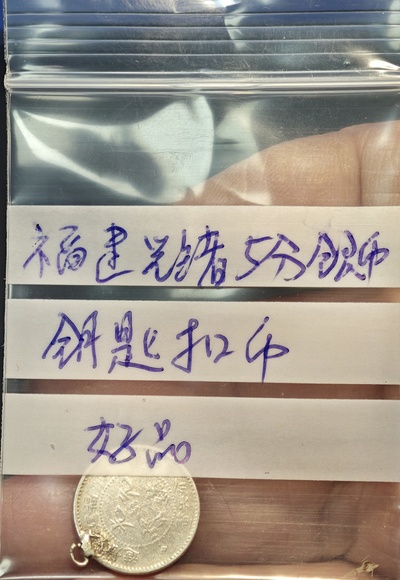 福建光绪5分银币
钥匙扣币
好品